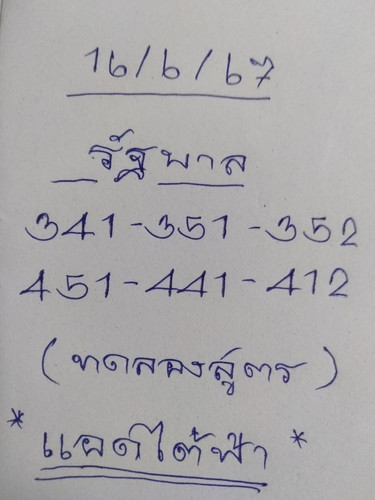 16/6/67
รัฐบาล
341-351-352
451-441-412
(ทดลองสูตร)
* แอดใต้ฟ้า *